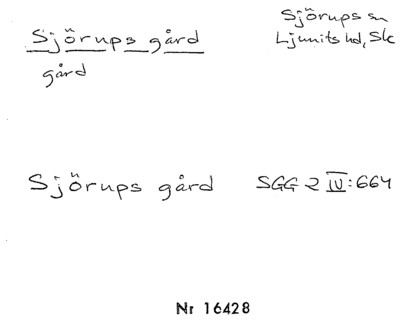 Sjörups gård
gård
Sjörups sn
Ljunits hd, Sk
Sjörups gård SGG 2 IV:664
Nr 16428